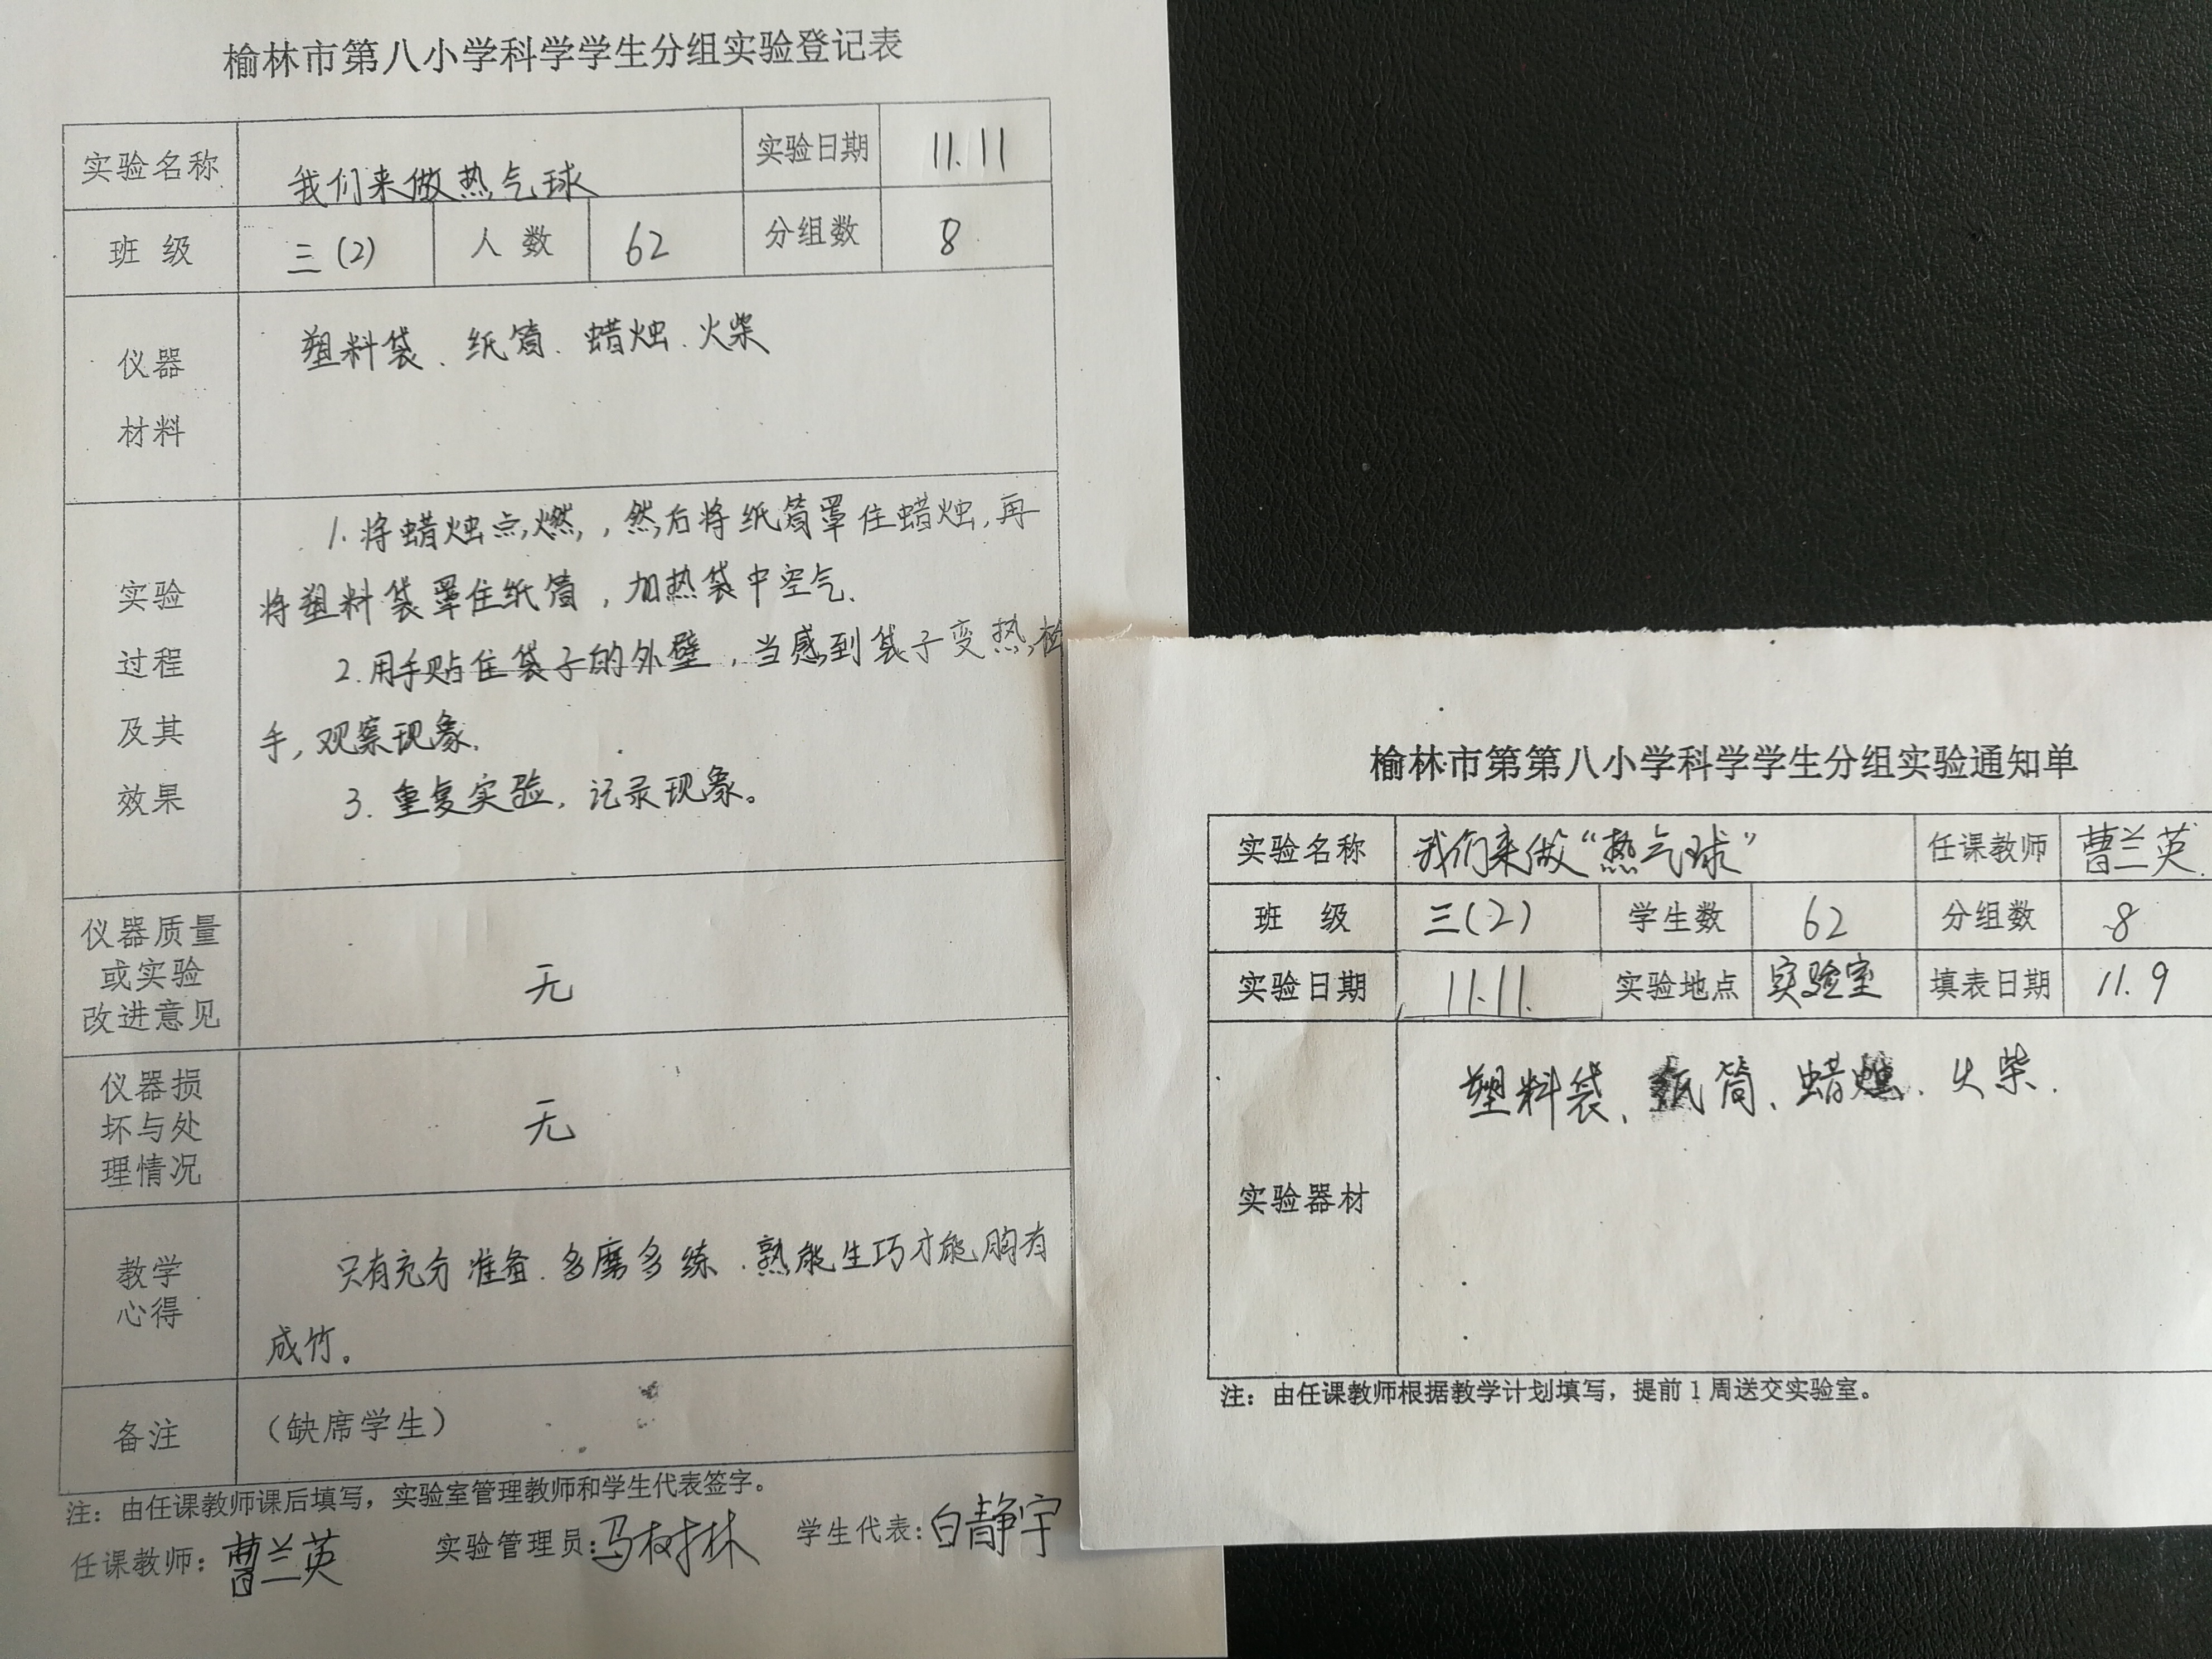 榆林市第八小学科学学生分组实验登记表
实验名称 我们来做热气球 实验日期 11.11
班 级 三(2) 人 数 62 分组数 8
仪器
材料
塑料袋、纸筒、蜡烛、火柴
实验
过程
及其
效果
1.将蜡烛点燃,然后将纸筒罩住蜡烛,再
将塑料袋罩住纸筒,加热袋中空气.
2.用手贴住袋子的外壁,当感到袋子变热,
手,观察现象.
3.重复实验,记录现象。
仪器质量
或实验
改进意见
无
仪器损
坏与处
理情况
无
教学
心得
只有充分准备、多磨多练、熟能生巧才能胸有
成竹。
备注 (缺席学生)
注:由任课教师课后填写,实验室管理教师和学生代表签字。
任课教师:曹兰英 实验管理员:马树林 学生代表:白静宇
榆林市第第八小学科学学生分组实验通知单
实验名称 我们来做“热气球” 任课教师 曹兰英.
班 级 三(2) 学生数 62 分组数 8
实验日期 11.11. 实验地点 实验室 填表日期 11.9
实验器材
塑料袋、纸筒、蜡烛、火柴.
注:由任课教师根据教学计划填写,提前1周送交实验室。